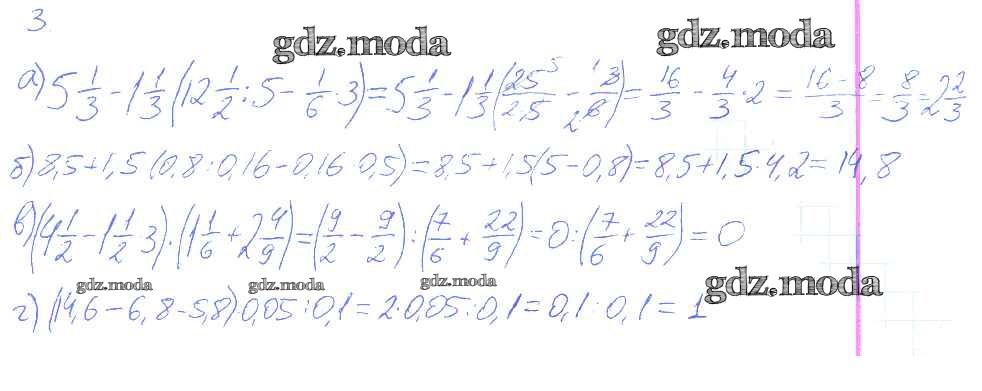 3.
gdz.moda
gdz.moda
а) 5 1/3 - 1 1/3 (12 1/2 : 5 - 1/6 · 3) = 5 1/3 - 1 1/3 (25/2·5 - 3/6) = 16/3 - 4/3 · 2 = 16-8/3 = 8/3 = 2 2/3
б) 8,5 + 1,5 (0,8 : 0,16 - 0,16 · 0,5) = 8,5 + 1,5 (5 - 0,8) = 8,5 + 1,5 · 4,2 = 14,8
в) (4 1/2 - 1 1/2 3) · (1 1/6 + 2 4/9) = (9/2 - 9/2) : (7/6 + 22/9) = 0 : (7/6 + 22/9) = 0
gdz.moda
gdz.moda
gdz.moda
г) (14,6 - 6,8 - 5,8) 0,05 : 0,1 = 2 · 0,05 : 0,1 = 0,1 : 0,1 = 1
gdz.moda
gdz.moda